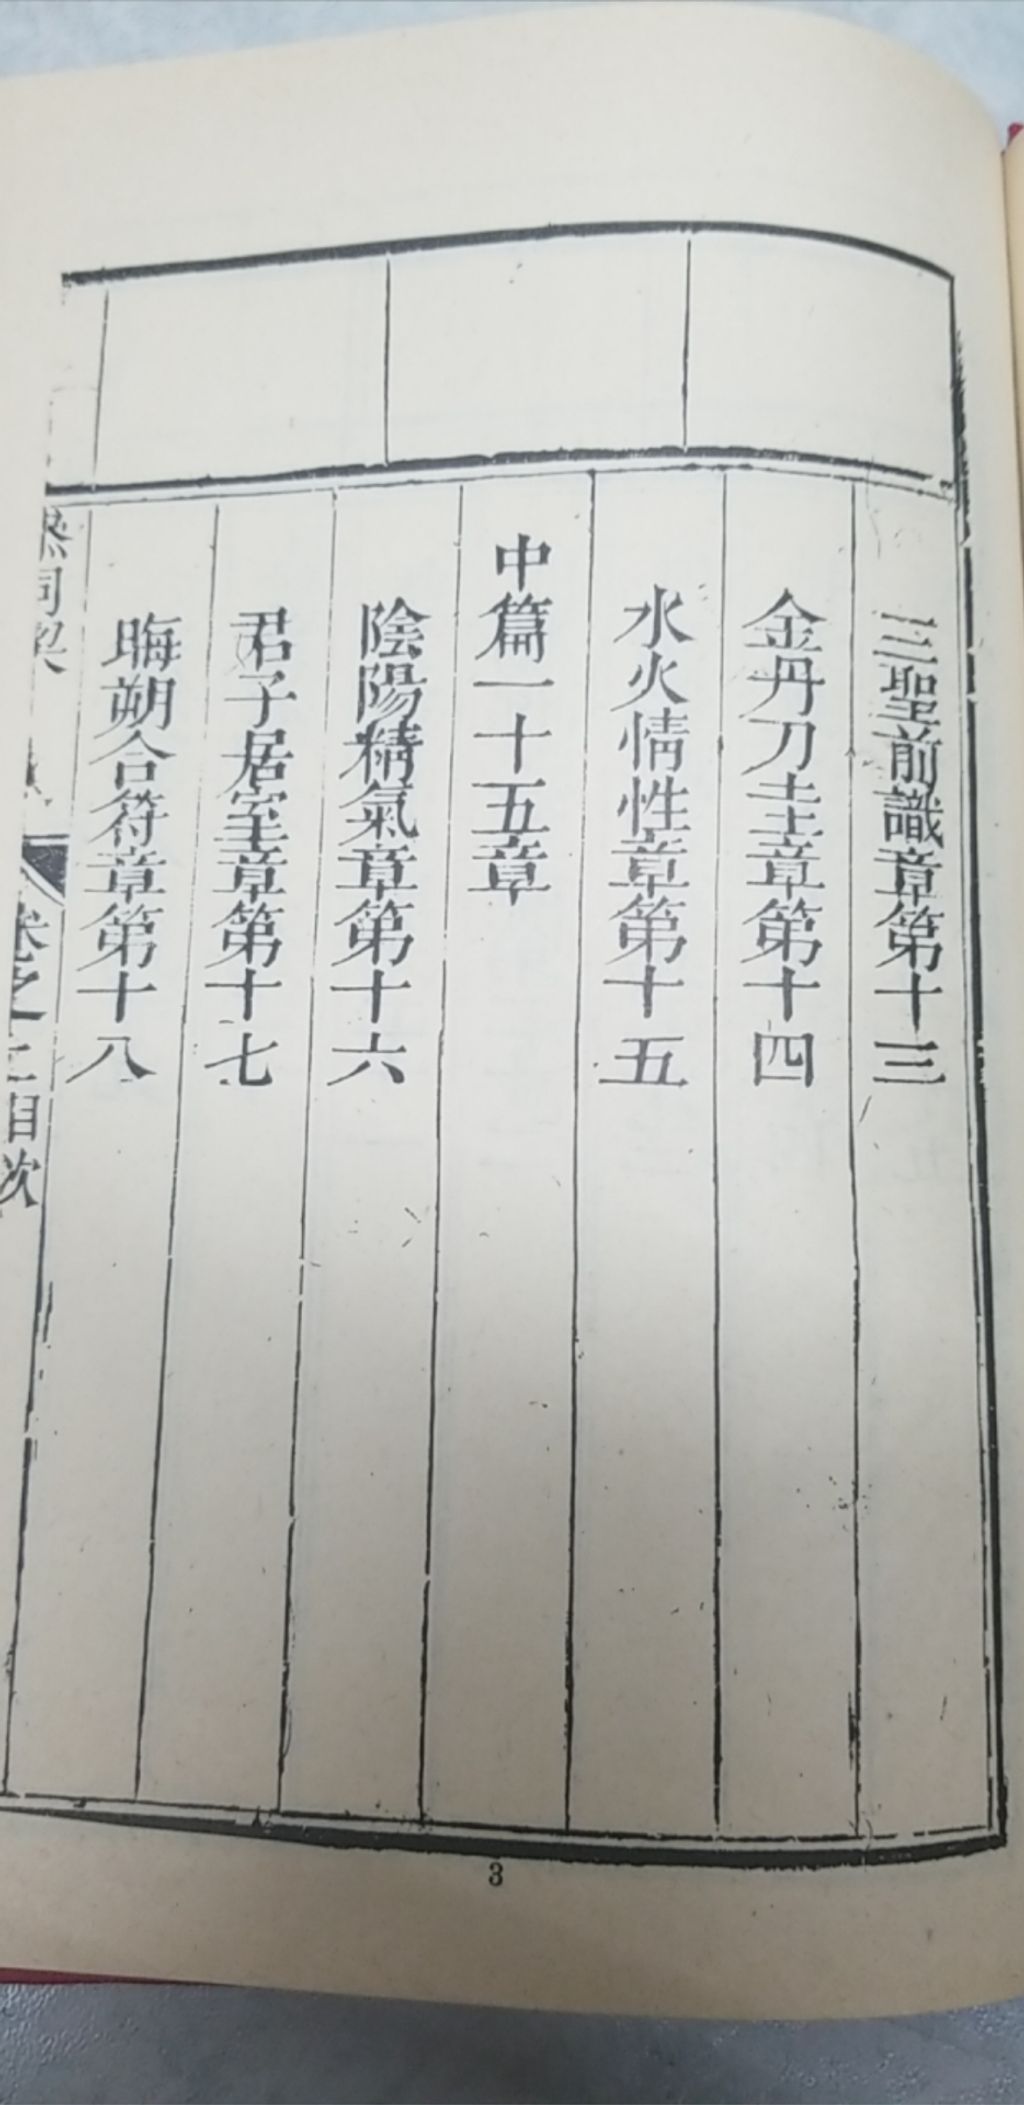 三聖前識章第十三
金丹刀圭章第十四
水火情性章第十五
中篇一十五章
陰陽精氣章第十六
君子居室章第十七
晦朔合符章第十八
參同契
卷之二目次
3